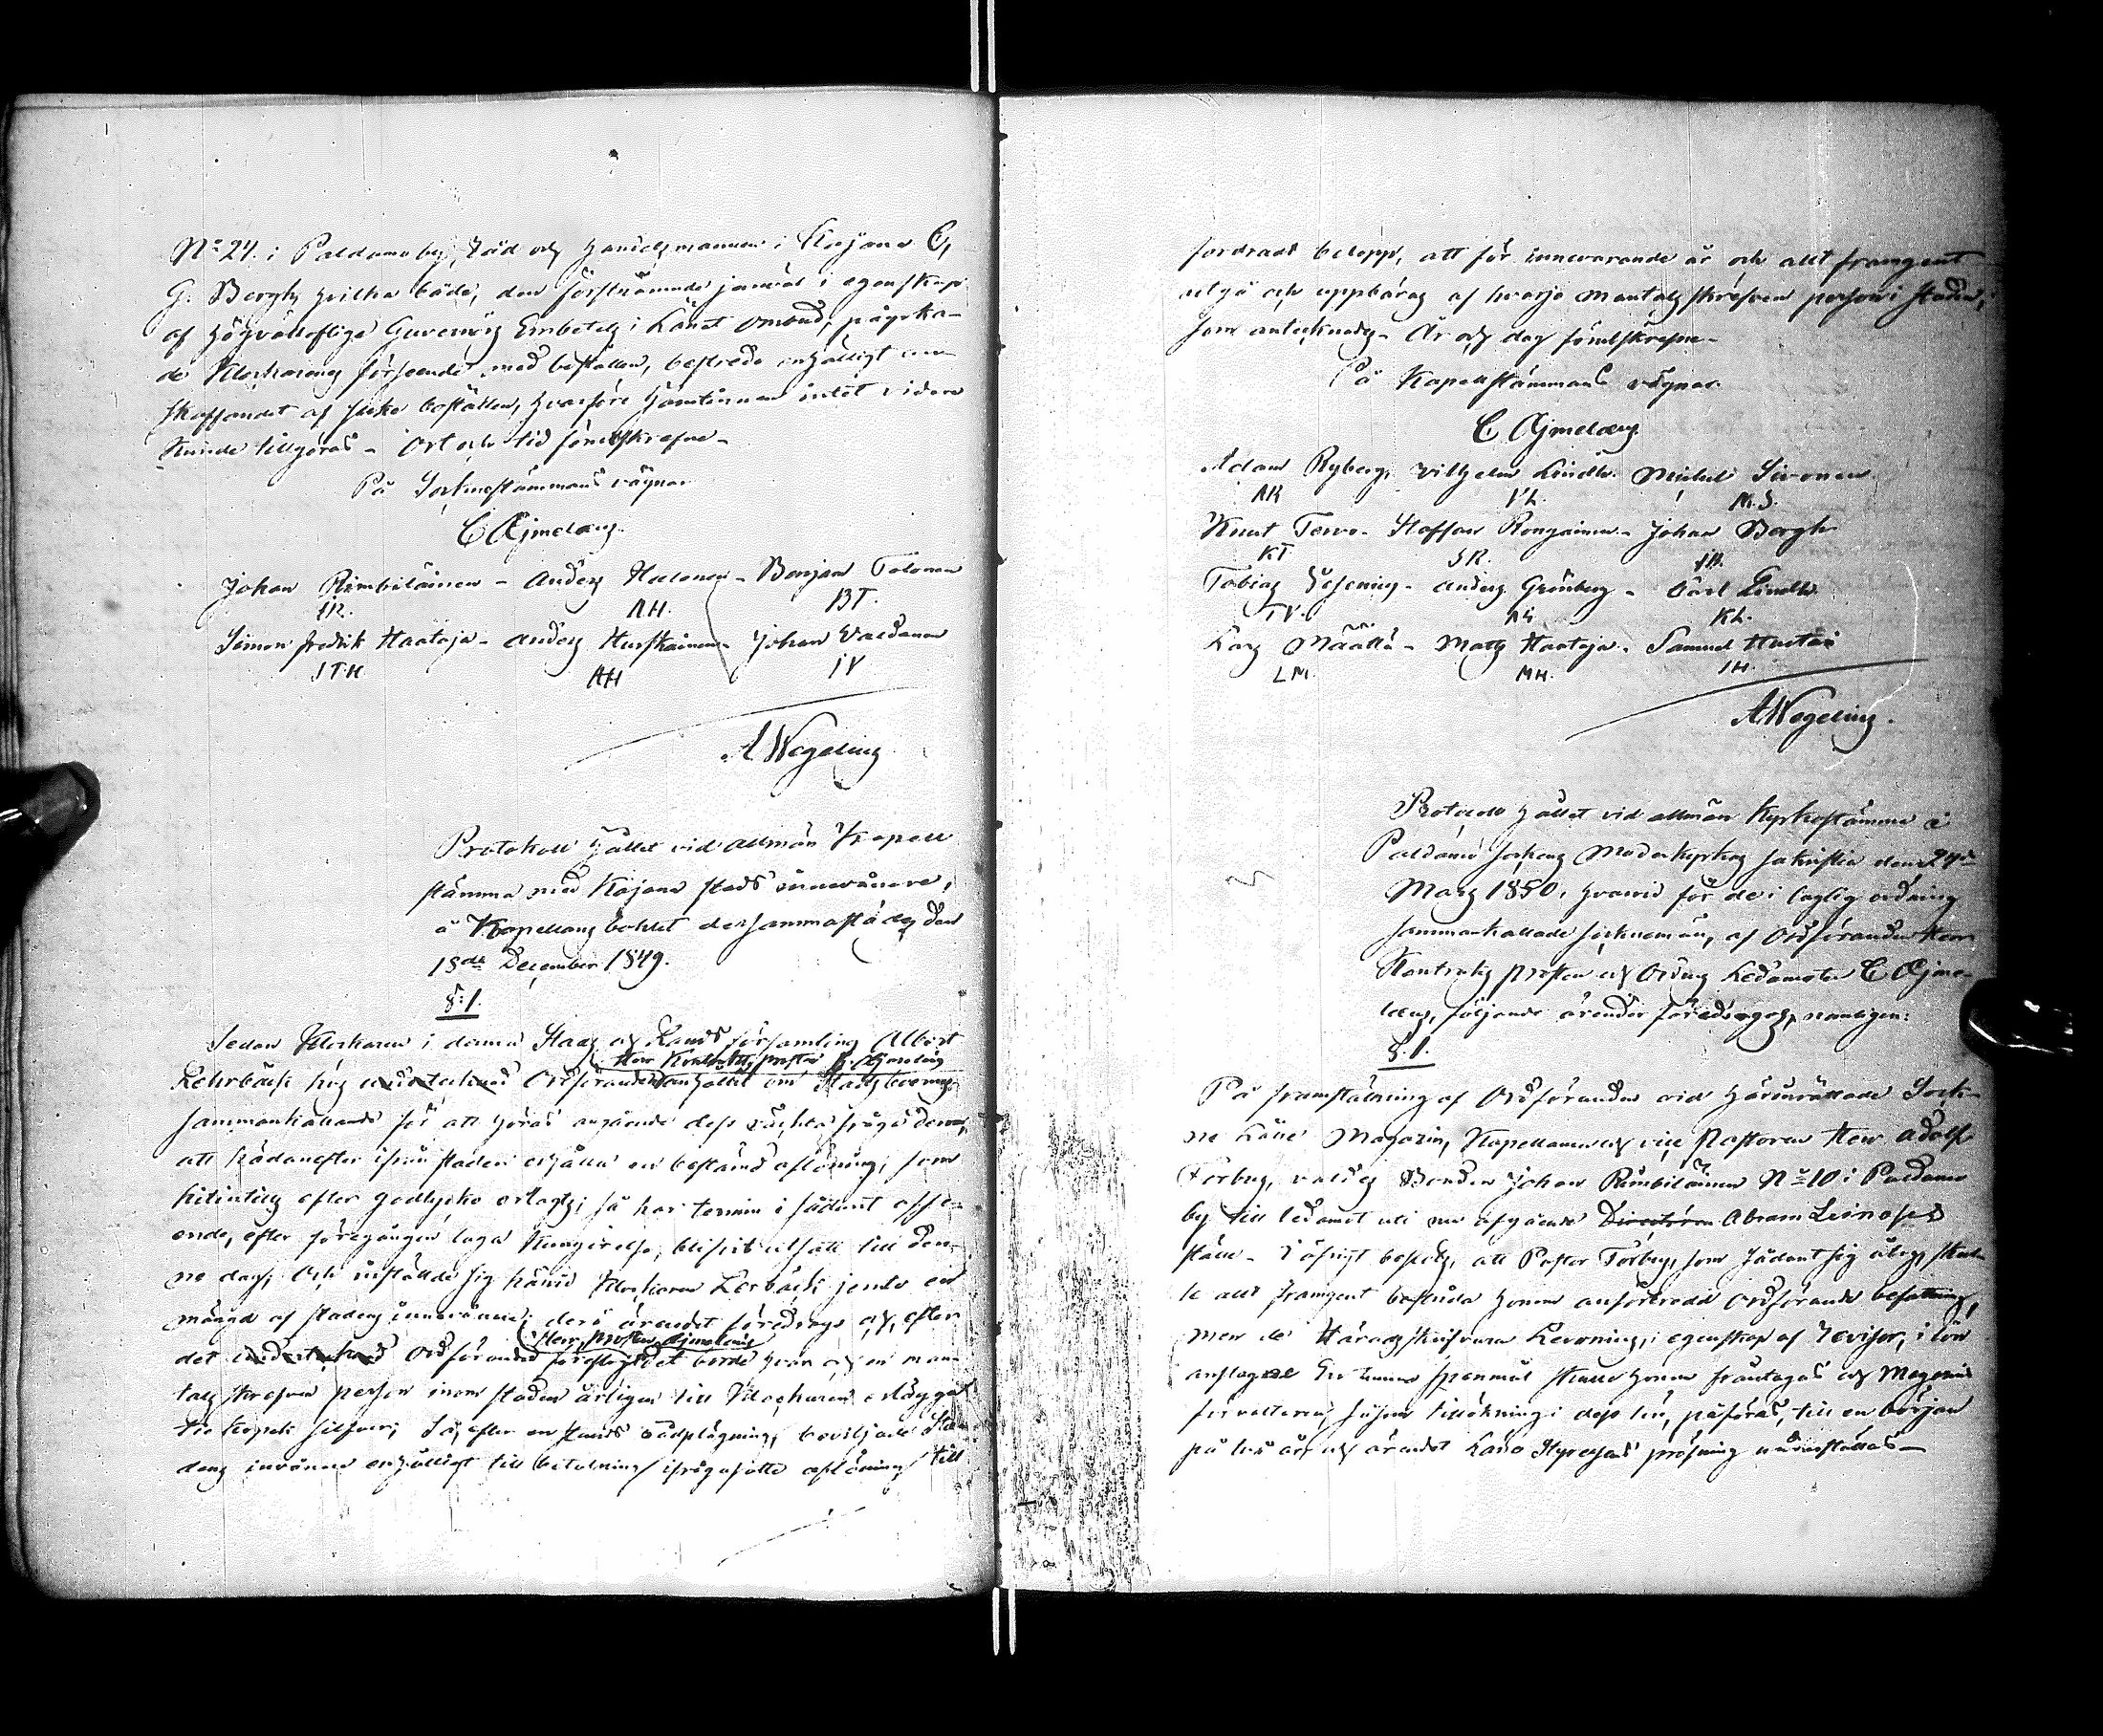 N:o 24. i Paldamo by, Råd och Handelsmannen i Kajana C,
G. Bergh, hvilka både, den förstnämnde jemväl i egenskap
af Högvällofliga Guvernörs Embetets i Länet Ombud, påyrka-
de Klockarens förseende med boställen, bestredo enhälligt an-
skaffandet af slike boställen, hvarföre Häruttinnan intet vidare
kunde tillgöras - Ort och tid förutskrefne -
På Sockne stämmans vägnar
C Æjmelæus.
Johan Rimbiläinen - Anders Halonen - Benjam Tolonen
IR. AH. BT.
Simon Fredrik Haataja - Anders Hurskainen - Johan Valdanen
SFH AH IV
A Wegelius
Protokoll hållet vid allmän Kapell
stämma med Kajana stads innevånare,
å Kapellans bohlet dersammastädes den
18de December 1849.
§: 1.
Sedan Klockaren i denna Stads och Lands församling Albert
Herr Kontrakts prosten C. Æjmelæus
Lehrbäck hos undertecknad Ordföranden anhållit om Stadsboernes
sammankallande för att höras angående dess väckta fråga derom,
att hädanefter ifrån staden erhålla en bestämd aflöning, som
hitintills efter godtycke erlagts; så har termin i sådant afse-
ende, efter föregången laga kungörelse, blifvit utsatt till den-
ne dag, Och inställde sig härvid Klockaren Lerbäck jemte en
mängd af stadens innevånare; der i ärendet föredrogs och, efter
Herr Prosten Æjmelæus
det undertecknad Ordförande föreslagit det borde hvar och en man-
tals skrefven person inom staden årligen till Klockaren erlägga
tio kopek silfver; Så, efter en stunds rådplägning, beviljade Sta-
dens invånare enhälligt till betalning ifrågasatte aflöning till
fordradt belopp, att för innevarande år och allt framgent
utgå och uppbäras af hvarje mantals skrefven person i staden,
som antecknades - År och dag förutskrefne -
På Kapellstämmans vägnar.
C Æjmelæus.
Adam Ryberg, Vilhelm Lindh. Michel Sivonen.
AR VL. M.S.
Knut Tervo - Staffan Rongainen - Johan Bergh
KT SR. IB.
Tobias Vesenius - Anders Grönberg - Carl Lindh.
TV. AG KL.
Lars Määttä - Matts Haataja - Samuel Hustari
LM. MH. SH.
A Wegelius.
Protocoll hållet vid allmän Kyrkostämma i
Paldamo Sockens Moderkyrkas sakristia den 24de
Mars 1850, hvarvid för de i laglig ordning
sammankallade sockneman, af Ordföranden Herr
Kontrakts prosten och Ordens Ledamoten C Æjme-
læus, följande ärender föredrogos, nemligen:
§. 1.
På framställning af Ordföranden vid härinrättade Sock-
ne Låne Magazin, Kapellanen och vice Pastoren Herr Adolf
Forbus, valdes Bonden Johan Rimbiläinen N:o 10 i Paldamo
by till ledamot uti nu afgående Directören Abram Leinos
ställe - I öfrigt beslöts, att Pastor Forbus, som sådant sig åtog, skul-
le allt framgent bestrida honom anförtrodd Ordförande befattning,
men de Häradsskrifvaren Levoning, i egenskap af Revisor, i lön
anslagne tunnor spannmål skulle honom fråntagas och Magazins
förvaltaren, såsom tillökning i dess lön, påföras, till en början
på tre år och ärendet Låne Styrelsens pröfning underställas -